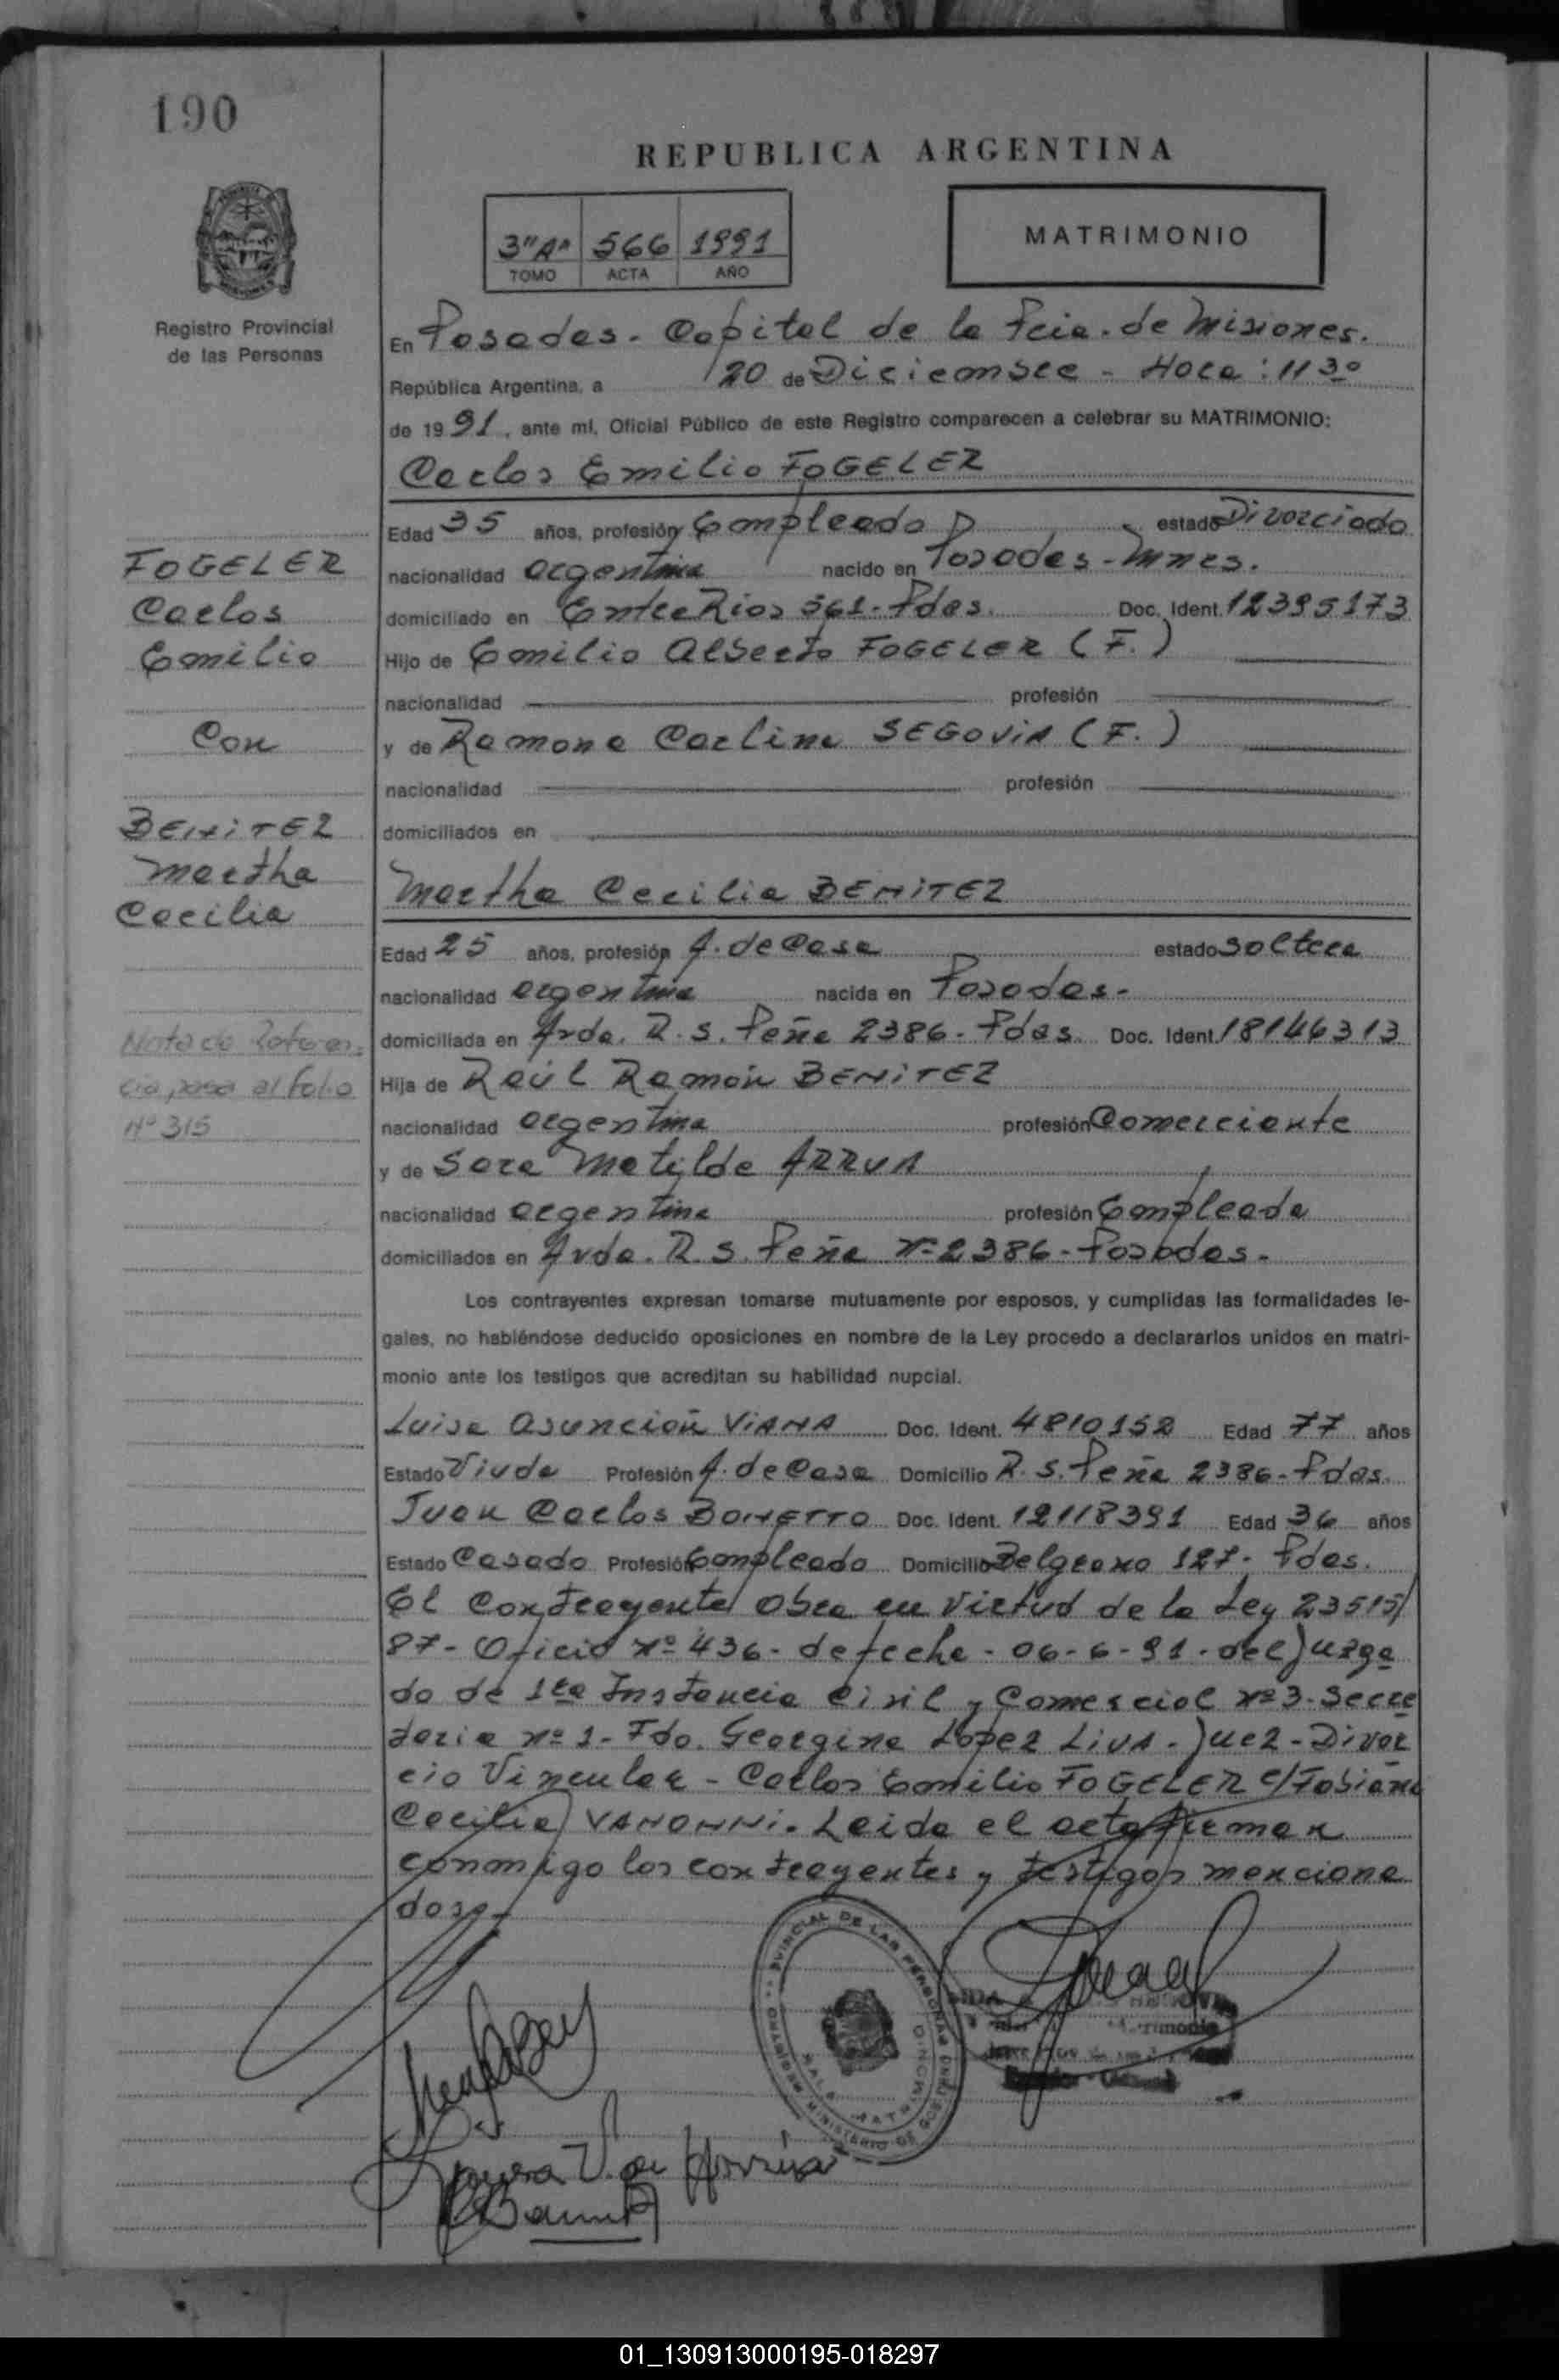 190
REPUBLICA ARGENTINA
3"A" 566 1991
TOMO ACTA AÑO
MATRIMONIO
Registro Provincial
de las Personas
En Posadas - Capital de la Pcia. de Misiones.
República Argentina, a 20 de Diciembre - Hora: 11 30
de 1991, ante mí, Oficial Público de este Registro comparecen a celebrar su MATRIMONIO:
Carlos Emilio FOGELER
Edad 35 años, profesión Empleado estado Divorciado
nacionalidad argentina nacido en Posadas - Mnes.
domiciliado en Entre Rios 561 - Pdas. Doc. Ident. 12395173
Hijo de Emilio Alberto FOGELER (F.)
nacionalidad profesión
y de Ramona Carlina SEGOVIA (F.)
nacionalidad profesión
domiciliados en
FOGELER
Carlos
Emilio
Con
BENITEZ
Martha
Cecilia
Martha Cecilia BENITEZ
Edad 25 años, profesión A. de Casa estado Soltera
nacionalidad argentina nacida en Posadas -
domiciliada en Avda. R. S. Peña 2386 - Pdas. Doc. Ident. 18146313
Hija de Raúl Ramón BENITEZ
nacionalidad argentina profesión Comerciante
y de Sara Matilde ARRUA
nacionalidad argentina profesión Empleada
domiciliados en Avda. R. S. Peña Nº 2386 - Posadas -
Nota de Referen-
cia, pasa al folio
Nº 315
Los contrayentes expresan tomarse mutuamente por esposos, y cumplidas las formalidades le-
gales, no habiéndose deducido oposiciones en nombre de la Ley procedo a declararlos unidos en matri-
monio ante los testigos que acreditan su habilidad nupcial.
Luisa Asunción VIANA Doc. Ident. 4810152 Edad 77 años
Estado Viuda Profesión A. de Casa Domicilio R. S. Peña 2386 - Pdas.
Juan Carlos BONETTO Doc. Ident. 12118391 Edad 36 años
Estado Casado Profesión Empleado Domicilio Belgrano 127 - Pdas.
El Contrayente Obra en Virtud de la Ley 23515/
87 - Oficio Nº 436 - de fecha - 06-6-91 - del Juzga
do de 1ra Instancia Civil y Comercial Nº 3 - Secre
taria Nº 1 - Fdo. Georgina Lopez Liva - Juez - Divor
cio Vincular - Carlos Emilio FOGELER c/ Fabiana
Cecilia VANONNI. Leida el acta firman
conmigo los contrayentes y testigos menciona
dos.-
PROVINCIAL DE LAS PERSONAS
MINISTERIO DE GOBIERNO
SALA MATRIMONIO
01_130913000195-018297